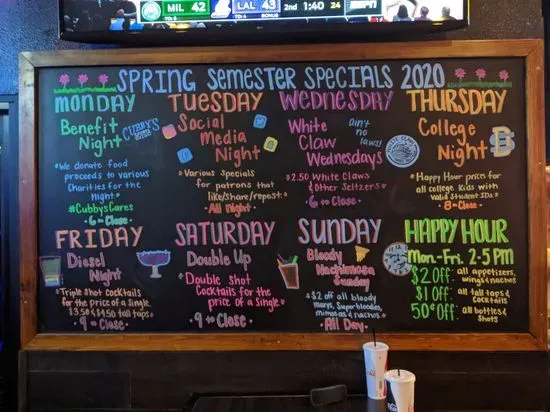 MIL 42 LAL 43 2nd 1:40 24 ESPN
TO: 3 TO: 4 BONUS
SPRING SEMESTER SPECIALS 2020
MONDAY
Benefit
Night
CUBBY'S
*We donate food
proceeds to various
Charities for the
Night*
#CubbysCares
•6-Close•
TUESDAY
Social
Media
Night
*Various Specials
for patrons that
like/share/repost*
•All night•
WEDNESDAY
White
Claw
Wednesdays
ain't
no laws!
*$2.50 White Claws
& Other Seltzers*
•6-Close•
THURSDAY
College
Night
B
*Happy Hour prices for
all college Kids with
valid Student IDs*
•8-Close•
FRIDAY
Diesel
Night
*Triple shot cocktails
for the price of a Single.
$3.50 & $4.50 tall taps*
•9-Close•
SATURDAY
Double Up
*Double Shot
Cocktails for the
price of a Single*
•9-Close•
SUNDAY
Bloody
Nachimosa
Sunday
*$2 off all bloody
marys, Superbloodies,
mimosas & nachos*
•All Day•
HAPPY HOUR
Mon-Fri. 2-5 PM
$2 Off: all appetizers, wings & nachos
$1 Off: all tall taps & Cocktails
50¢ Off: all bottles & Shots